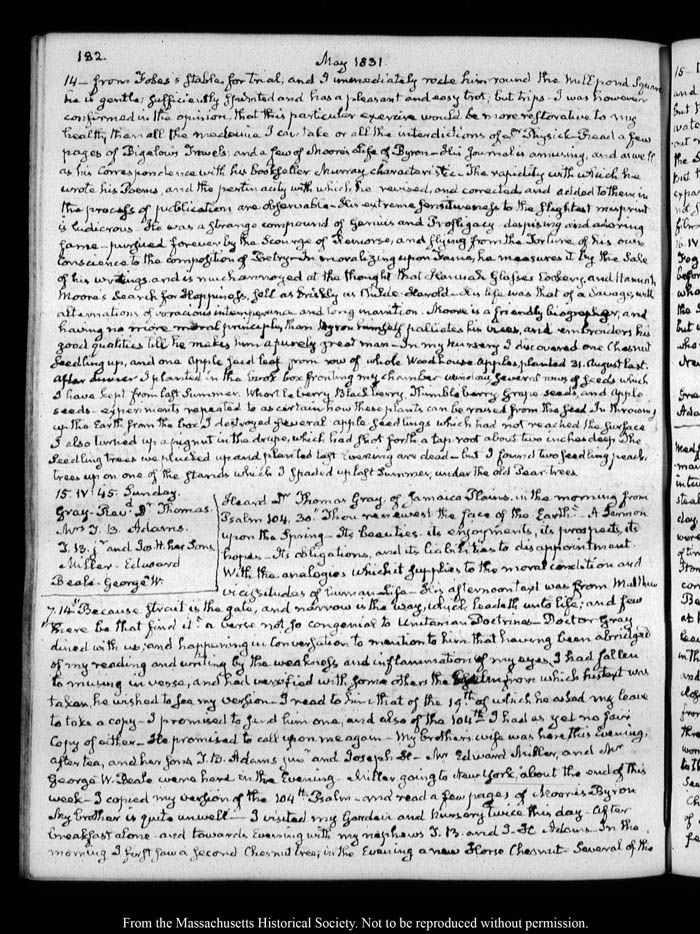 182.
May 1831.
14 – from Fobes's Stable, for trial, and I immediately rode him round the Mill pond Square
he is gentle; sufficiently spirited and has a pleasant and easy trot; but trips – I was however
confirmed in the opinion, that this particular exercise would be more restorative to my
health, than all the medicine I can take or all the interdictions of a Physick – Read a few
pages of Bigelow's Travels: and a few of Moore's Life of Byron – His Journal is amusing, and as well
as his Correspondence with his bookseller Murray, characteristic – The rapidity with which he
wrote his Poems, and the pertinacity with which he revised, and corrected, and added to them in
the process of publication are observable – His extreme sensitiveness to the slightest misprint
is ludicrous – He was a strange compound of Genius and Profligacy – despising and adoring
fame – pursued forever by the Scourge of Remorse, and flying from the Torture of his own
Conscience to the composition of Poetry – In moralizing upon Fame, he measures it by the Sale
of his writings, and is much annoyed at the thought that Hannah Glasse's Cookery, and Hannah
Moore's Search for Happiness, sell as briskly as Childe-Harold – His life was that of a Savage, with
alternations of voracious intemperance and long inanition. Moore is a friendly biographer, and
having no more moral principle than Byron himself palliates his vices, and embroiders his
good qualities till he makes him a purely great man – In my nursery I discovered one Chesnut
Seedling up, and one Apple seed leaf from row of whole Woodhouse apples, planted 31. August last.
After dinner I planted in the box fronting my chamber window several rows of seeds which
I have kept from last Summer. Whortleberry Blackberry, Thimbleberry Grape seeds, and Apple
seeds – experiments repeated to ascertain how these plants can be raised from the seed. In throwing
up the Earth from the box I destroyed several apple seedlings which had not reached the surface
I also turned up a pegnut in the drupe, which had shot forth a tap root about two inches deep. The
Seedling trees we plucked up and planted last Evening are dead – but I found two seedling peach
trees up on one of the Stands which I spaded up last Summer, under the old Pear trees.
15. IV: 45. Sunday.
Gray – Revd Dr Thomas.
Mrs T. B. Adams.
T. B. jr and Jos. H. her Sons
Miller – Edward
Beale – George W.
Heard Dr Thomas Gray, of Jamaica Plains, in the morning from
Psalm 104. 30. "Thou renewest the face of the Earth" – A Sermon
upon the Spring – Its beauties – its enjoyments, its prospects, its
hopes – Its obligations, and its liabilities to disappointment
With the analogies which it supplies to the moral condition and
vicissitudes of human Life – His afternoon text was from Matthew
7. 14. "Because strait is the gate, and narrow is the way, which leadeth unto life; and few
there be that find it": a verse not so congenial to Unitarian Doctrines – Doctor Gray
dined with us; and happening in conversation to mention to him that having been abridged
of my reading and writing by the weakness and inflammation of my eyes, I had fallen
to musing in verse, and had versified with some others the Psalm from which his text was
taken, he wished to see my version – I read to him that of the 19th of which he asked my leave
to take a copy – I promised to send him one, and also of the 104th I had as yet no fair
Copy of either – He promised to call upon me again – My brother's wife was here this Evening,
after tea, and her Sons T. B. Adams junr and Joseph H. – Mr Edward Miller, and Mr
George W. Beale were here in the Evening – Miller going to New York, about the end of this
week – I copied my version of the 104th Psalm – and read a few pages of Moore's Byron
My brother is quite unwell – I visited my Garden and nursery twice this day – After
breakfast alone – and towards Evening with my nephews T. B. and J. H. Adams – In the
morning I first saw a second Chesnut tree; in the Evening a new Horse Chesnut – Several of the
From the Massachusetts Historical Society. Not to be reproduced without permission.